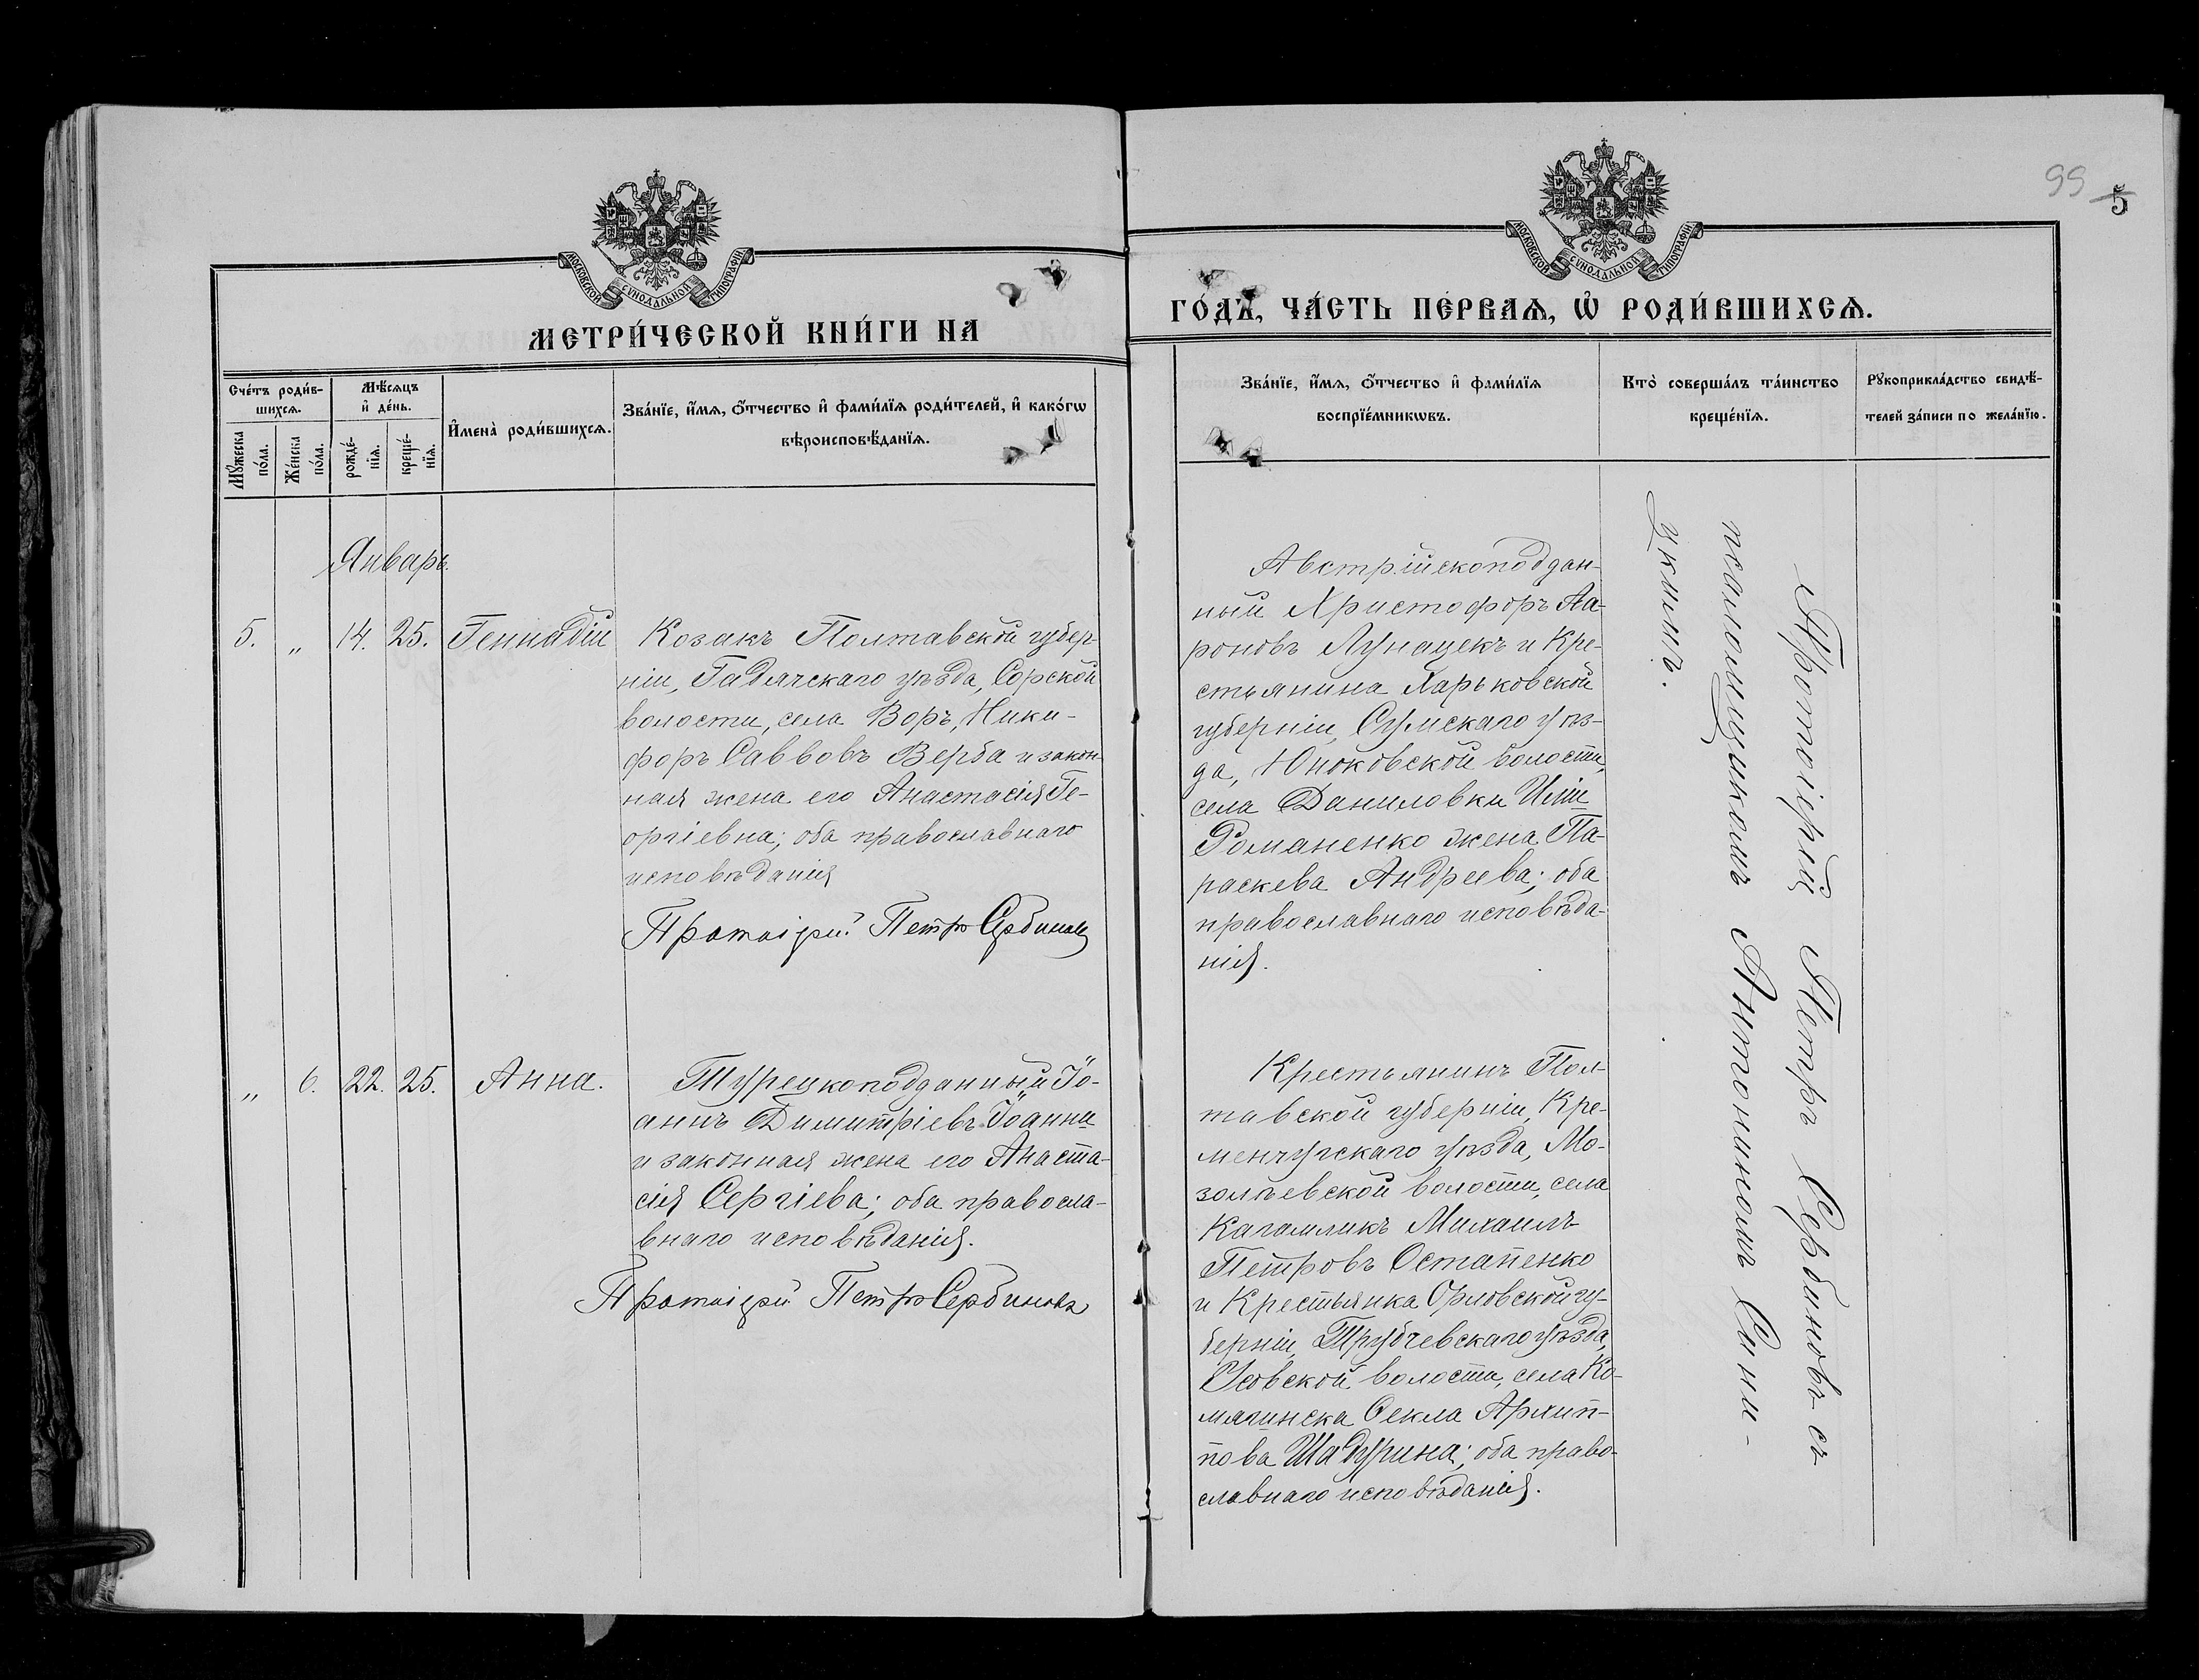 99
5
МОСКОВСКОЙ СѴНОДАЛЬНОЙ ТИПОГРАФІИ
МОСКОВСКОЙ СѴНОДАЛЬНОЙ ТИПОГРАФІИ
МЕТРИ́ЧЕСКОЙ КНИ́ГИ НА
ГО́ДЪ, ЧА́СТЬ ПЕ́РВАЯ, Ѡ҆ РОДИ́ВШИХСЯ.
Сче́тъ роди́в-
шихся.
Мѣ́сяцъ
и҆ де́нь.
Мꙋ́жеска
по́ла.
Же́нска
по́ла.
рожде́-
нїя.
креще́-
нїя.
И҆мена̀ роди́вшихся.
Зва́нїе, и҆́мя, ѻ҆́тчество и҆ фами́лїя роди́телей, и҆ како́гѡ
вѣроисповѣ́данїя.
Зва́нїе, и҆́мя, ѻ҆́тчество и҆ фами́лїя
воспрїе́мникѡвъ.
Кто̀ соверша́лъ та́инство
креще́нїя.
Рꙋкоприкла́дство свидѣ́-
телей за́писи по жела́нїю.
Январь.
5. „ 14. 25. Геннадій
Козакъ Полтавской губер-
ніи, Гадячскаго уѣзда, Сорской
волости, села Боръ, Ники-
форъ Саввовъ Верба и закон-
ная жена его Анастасія Ге-
оргіевна; оба православнаго
исповѣданія
Протоіерей Петръ Сербиновъ
Австрійскоподдан-
ный Христофоръ Аа-
роновъ Лунацекъ и Кре-
стьянина Харьковской
губерніи, Сумскаго уѣз-
да, Юноковской волости,
села Даниловки Иліи
Романенко жена Па-
раскева Андреева; оба
православнаго исповѣда-
нія.
„ 6. 22. 25. Анна.
Турецкоподданный Іо-
аннъ Димитріевъ Іоанни
и законная жена его Анаста-
сія Сергіева; оба правосла-
внаго исповѣданія.
Протоіерей Петръ Сербиновъ
Крестьянинъ Пол-
тавской губерніи, Кре-
менчугскаго уѣзда, Мо-
золѣевской волости, села
Кагамликъ Михаилъ
Петровъ Остапенко
и Крестьянка Орловской гу-
берніи, Трубчевскаго уѣзда,
Усовской волости, села Ко-
мягинска Ѳекла Архип-
пова Шадурина; оба право-
славнаго исповѣданія.
Протоіерей Петръ Сербиновъ съ
псаломщикомъ Антониномъ Сини-